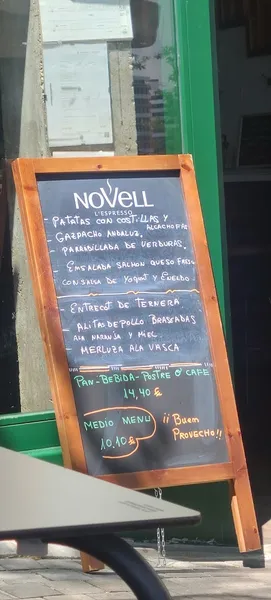 NOVELL
L'ESPRESSO
- PATATAS CON COSTILLAS Y
ALCACHOFAS
- GAZPACHO ANDALUZ.
- PARRILLADA DE VERDURAS.
- ENSALADA SALMON QUESO FRESCO
CON SALSA DE YOGURT Y ENELDO.
- ENTRECOT DE TERNERA
- ALITAS DE POLLO BRASEADAS
A LA NARANJA Y MIEL
- MERLUZA A LA VASCA
PAN-BEBIDA-POSTRE O CAFE
14,40 €
MEDIO MENU
10,10 €
¡¡ BUEN
PROVECHO!!